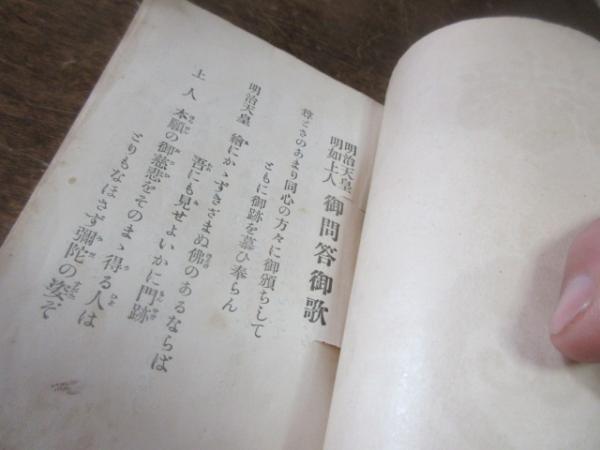 明治天皇
明如上人
御問答御歌
尊とさのあまり同心の方々に御頒ちして
ともに御跡を慕ひ奉らん
明治天皇 繪にかゝずきざまぬ佛のあるならば
吾にも見せよいかに門跡
上人 本願の御慈悲をそのまゝ得る人は
とりもなほさず彌陀の姿ぞ